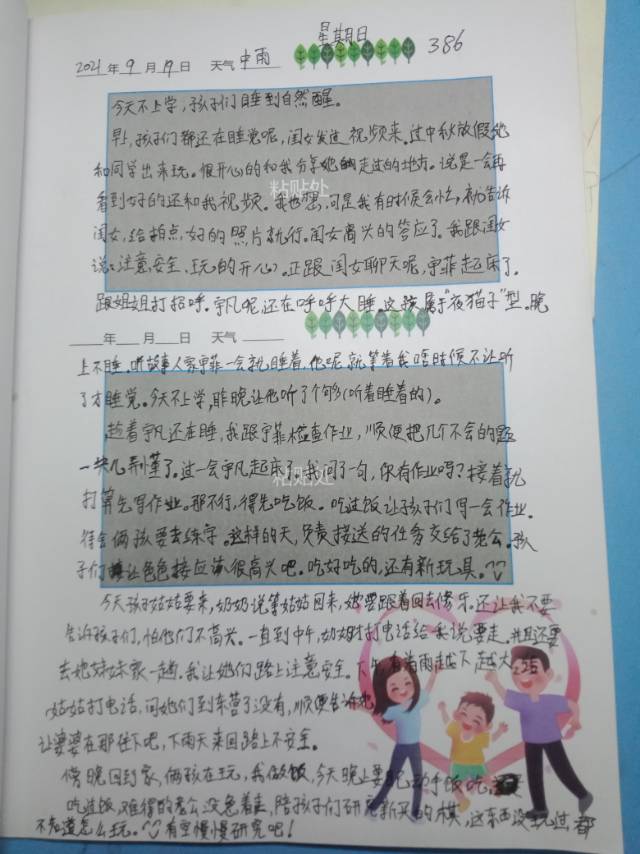 星期日
2021年9月19日 天气 中雨 386
今天不上学,孩子们睡到自然醒。
早上,孩子们都还在睡觉呢,闺女发过视频来。过中秋放假她
和同学出来玩。很开心的和我分享她走过的地方。说是一会再
看到好的还和我视频。我也想,可是我有时候会忙,就告诉
闺女,给拍点好的照片就行。闺女高兴的答应了。我跟闺女
说:注意安全、玩的开心。正跟闺女聊天呢,宇菲起床了。
跟姐姐打招呼。宇凡呢还在呼呼大睡。这孩属于"夜猫子"型。晚
年 月 日 天气
上不睡。听故事人家宇菲一会就睡着,他呢,就等着我啥时候不让听
了才睡觉。今天不上学,昨晚让他听了个够(听着睡着的)。
趁着宇凡还在睡,我跟宇菲检查作业,顺便把几个不会的题
一块儿弄懂了。过一会宇凡起床了。我问了一句,你有作业吗?接着就
打算先写作业。那不行,得先吃饭。吃过饭让孩子们写一会作业。
待会俩孩要去练字。这样的天,负责接送的任务交给了老公。孩
子们让爸爸接应该很高兴吧。吃好吃的,还有新玩具。
今天孩子姑姑要来,奶奶说等姑姑回来,她要跟着回去。还让我不要
告诉孩子们,怕他们不高兴。一直到中午,奶奶才打电话给我说要走。并且还要
去她妹妹家一趟。我让她们路上注意安全。下午,看着雨越下越大,给
姑姑打电话,问她们到东营了没有,顺便告诉她,
让婆婆在那住下吧,下雨天来回路上不安全。
傍晚回到家,俩孩在玩,我做饭,今天晚上要自己动手饭吃。
吃过饭,难得的老公没急着走,陪孩子们研究新买的棋,这东西没玩过,都
不知道怎么玩。有空慢慢研究吧!
粘贴处
粘贴处